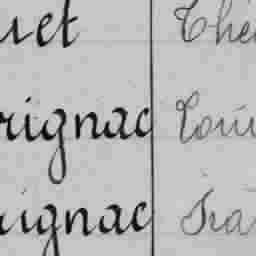 uet Thé
rignac Loui
rignac Fra